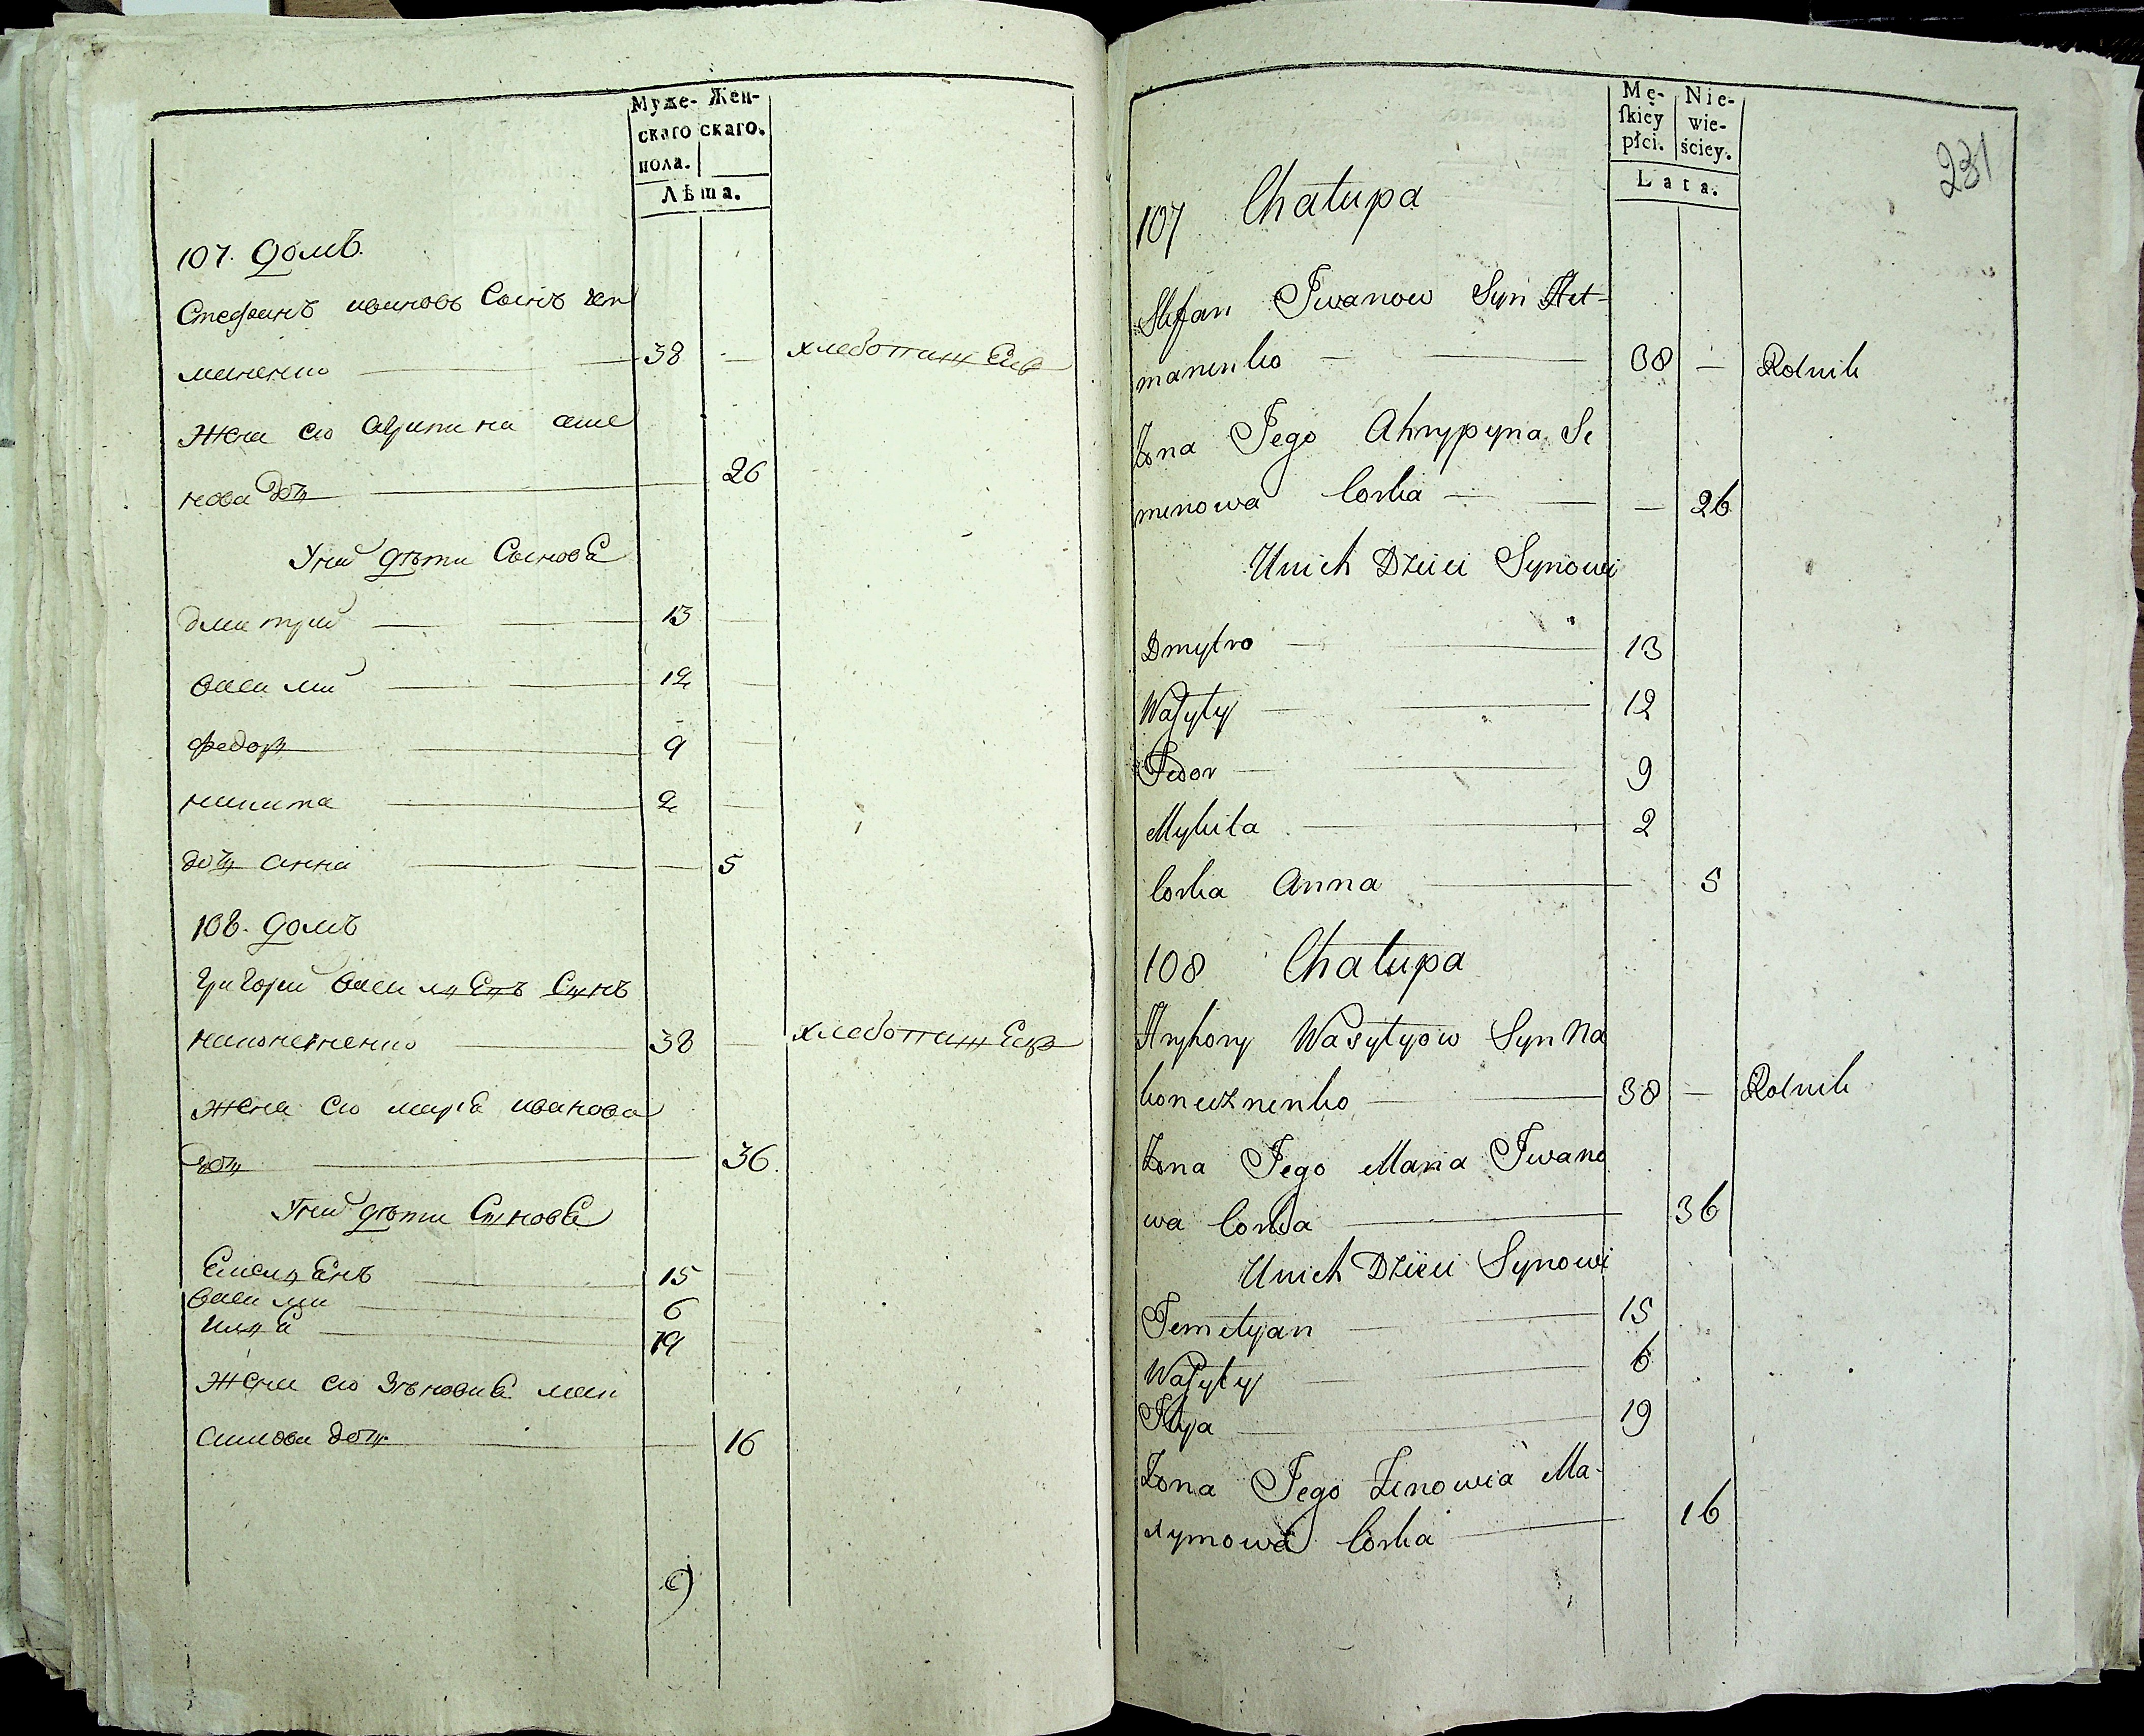 Муже- Жен-
скаго скаго.
пола.
Лѣта.
107. домъ
Стефанъ ивановъ Сынъ гет
маненко — 38 — хлебопашецъ
Жена его Агрипина семе
нова дочь — 26
У них дѣти Сыновья
дмитрий — 13 —
васили — 12 —
федор — 9 —
никита — 2 —
дочь анна — 5
108. домъ
григорий васильевъ Сынъ
наконечненко — 38 — хлебопашецъ
жена его марья иванова
дочь — 36.
У них дѣти Сыновья
Емельянъ — 15 —
васили — 6
илья — 19 —
Жена его Зѣновия мак
симова дочь — 16
9
Mę- Nie-
ſkiey wie-
płci. ściey.
Lata.
231
107 Chałupa
Stefan Iwanow Syn Het-
manenko — 38 — Rolnik
Żona Jego Ahrypyna Se
menowa Corka — 26
Unich Dzieci Synowi
Dmytro — 13
Waſyly — 12
Fedor — 9
Mykita — 2
Corka Anna — 5
108 Chałupa
Hryhory Wasylyow Syn Na
konecznenko — 38 — Rolnik
Żona Jego Maria Iwano
wa Corka — 36
Unich Dzieci Synowi
Jemelyan — 15
Waſyly — 6
Ilya — 19
Żona Jego Zenowia Ma-
xymowa Corka — 16